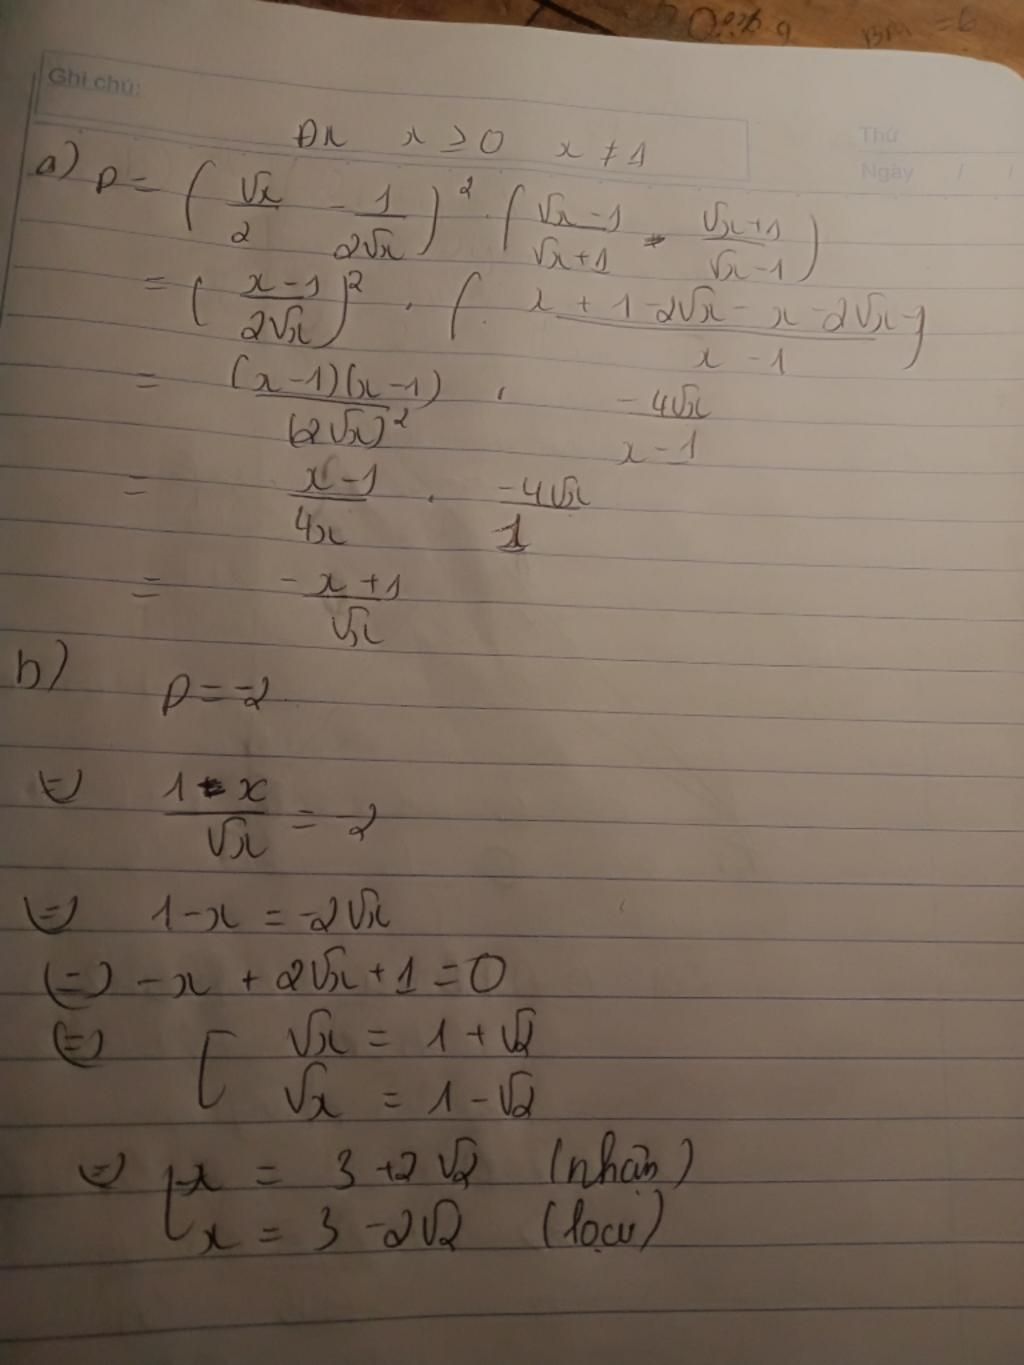 Ghi chú:
Thứ
Ngày / /
ĐK x > 0 x ≠ 1
a) P = ( √x/2 - 1/2√x )² . ( √x-1/√x+1 - √x+1/√x-1 )
= ( x-1/2√x )² . ( x + 1 - 2√x - x - 2√x - 1/x - 1 )
= (x-1)(x-1)/(2√x)² . -4√x/x-1
= x-1/4x . -4√x/1
= -x+1/√x
b) P = -2
(=) 1 - x/√x = -2
(=) 1-x = -2√x
(=) -x + 2√x + 1 = 0
(=) [ √x = 1 + √2
√x = 1 - √2
(=) [ x = 3 + 2√2 (nhận)
x = 3 - 2√2 (loại)